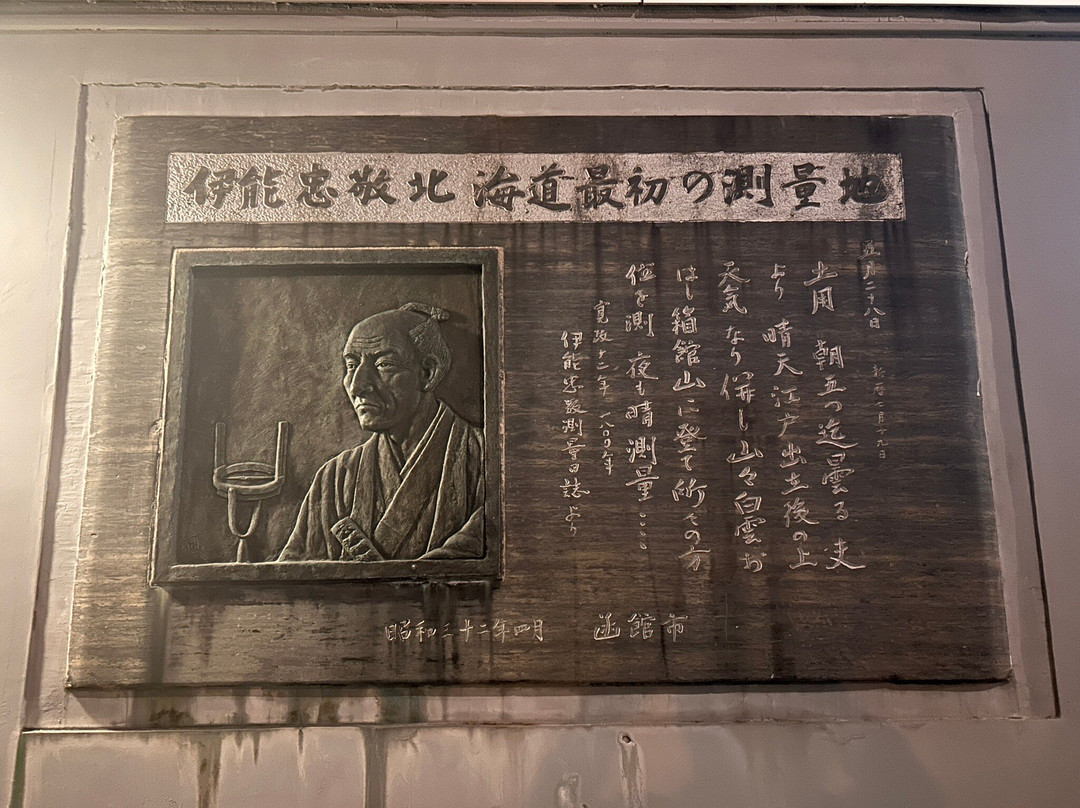 伊能忠敬北海道最初の測量地
五月二十八日 新暦七月十九日
土用 朝五つ迄曇る 夫
より 晴天江戸出立後の上
天気 なり併し山々白雲お
ほし箱館山に登て所々の方
位を測 夜も晴 測量……
寛政十二年 一八〇〇年
伊能忠敬測量日誌より
昭和三十二年四月 函館市